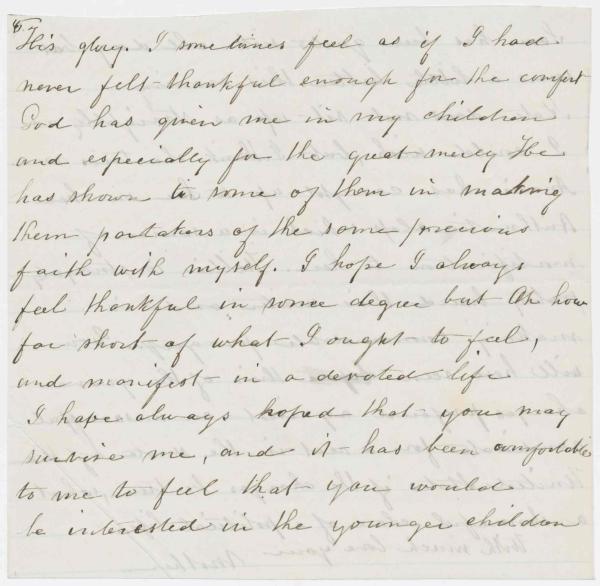 8.
His glory. I sometimes feel as if I had
never felt thankful enough for the comfort
God has given me in my children
and especially for the great mercy He
has shown to some of them in making
them partakers of the same precious
faith with myself. I hope I always
feel thankful in some degree but Oh how
far short of what I ought to feel,
and manifest in a devoted life
I have always hoped that you may
survive me, and it has been comfortable
to me to feel that you would
be interested in the younger children
With much love your
Mother